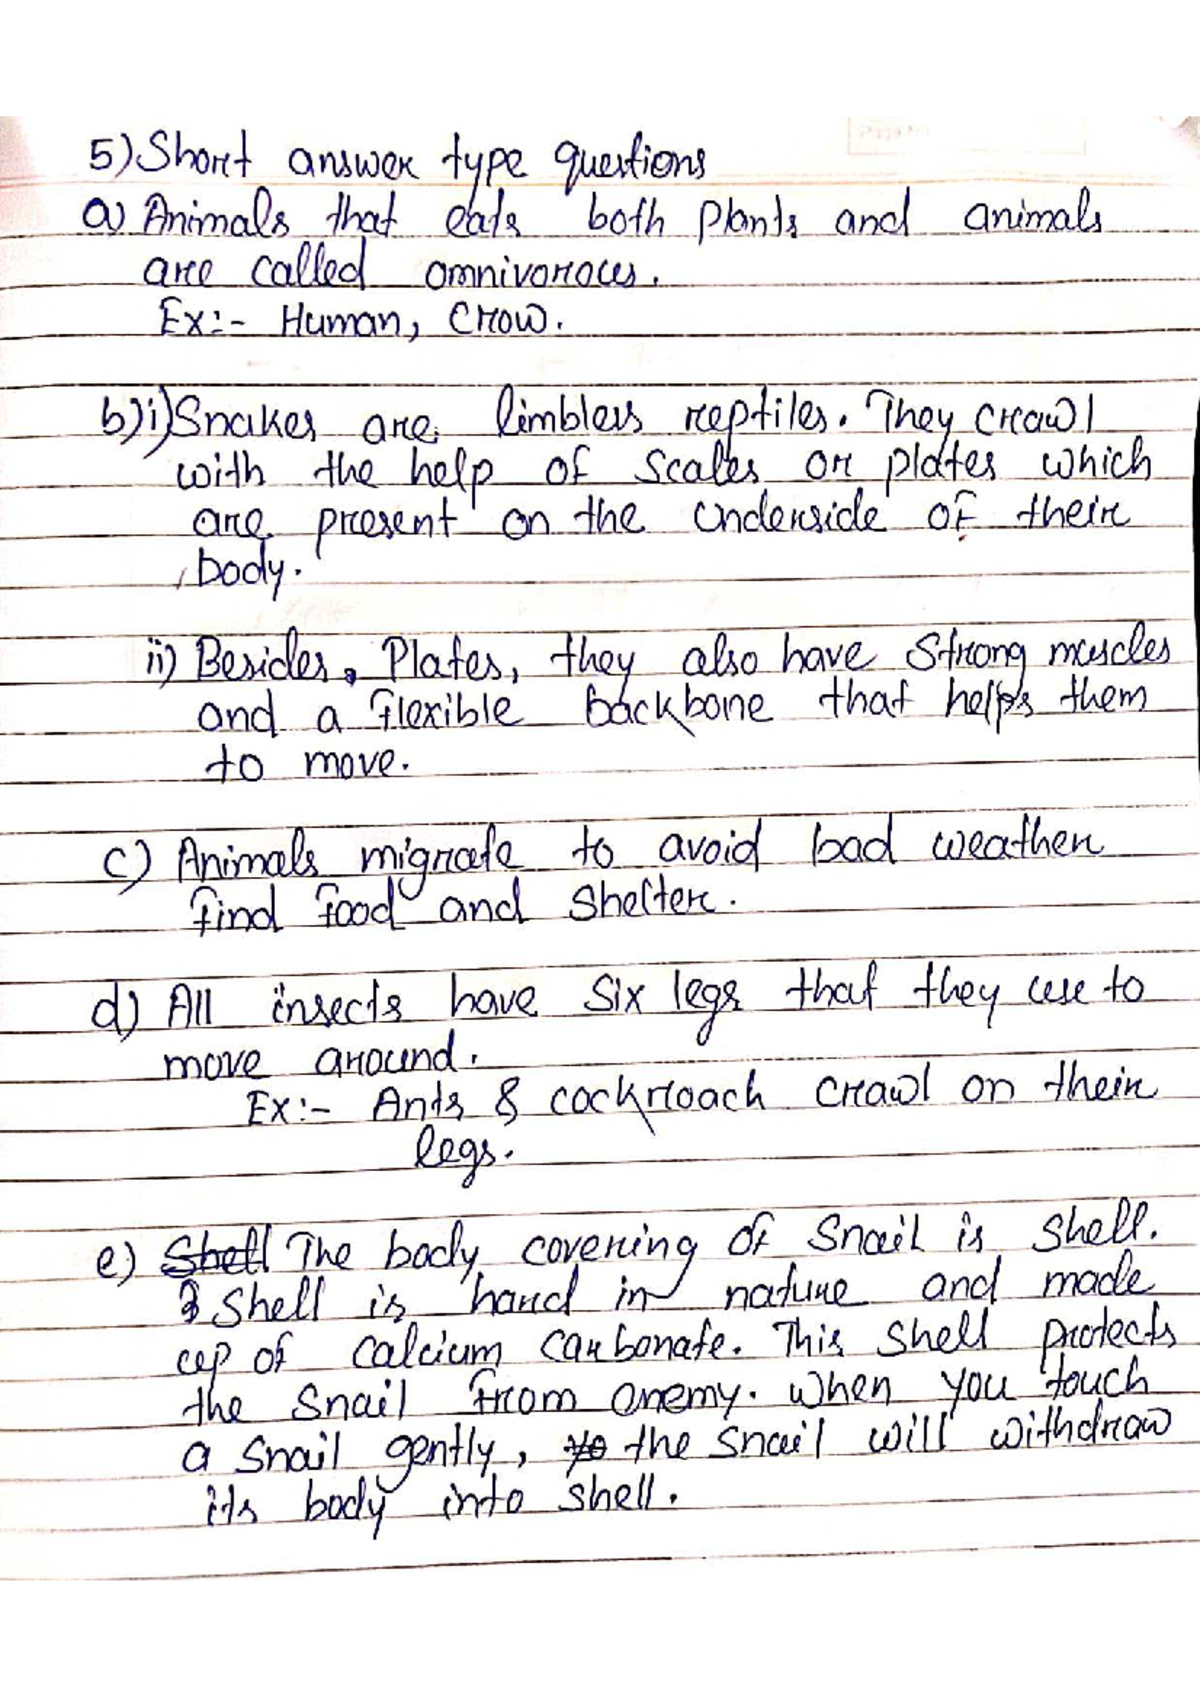 5) Short answer type questions
a) Animals that eats both plants and animals
are called omnivorous.
Ex:- Human, Crow.
b) i) Snakes are limbless reptiles. They crawl
with the help of scales or plates which
are present on the underside of their
body.
ii) Besides, Plates, they also have strong muscles
and a flexible backbone that helps them
to move.
c) Animals migrate to avoid bad weather
find food and shelter.
d) All insects have six legs that they use to
move around.
Ex:- Ants & cockroach crawl on their
legs.
e) Shell The body covering of Snail is Shell.
Shell is hard in nature and made
up of calcium carbonate. This shell protects
the snail from enemy. When you touch
a snail gently, to the snail will withdraw
its body into shell.